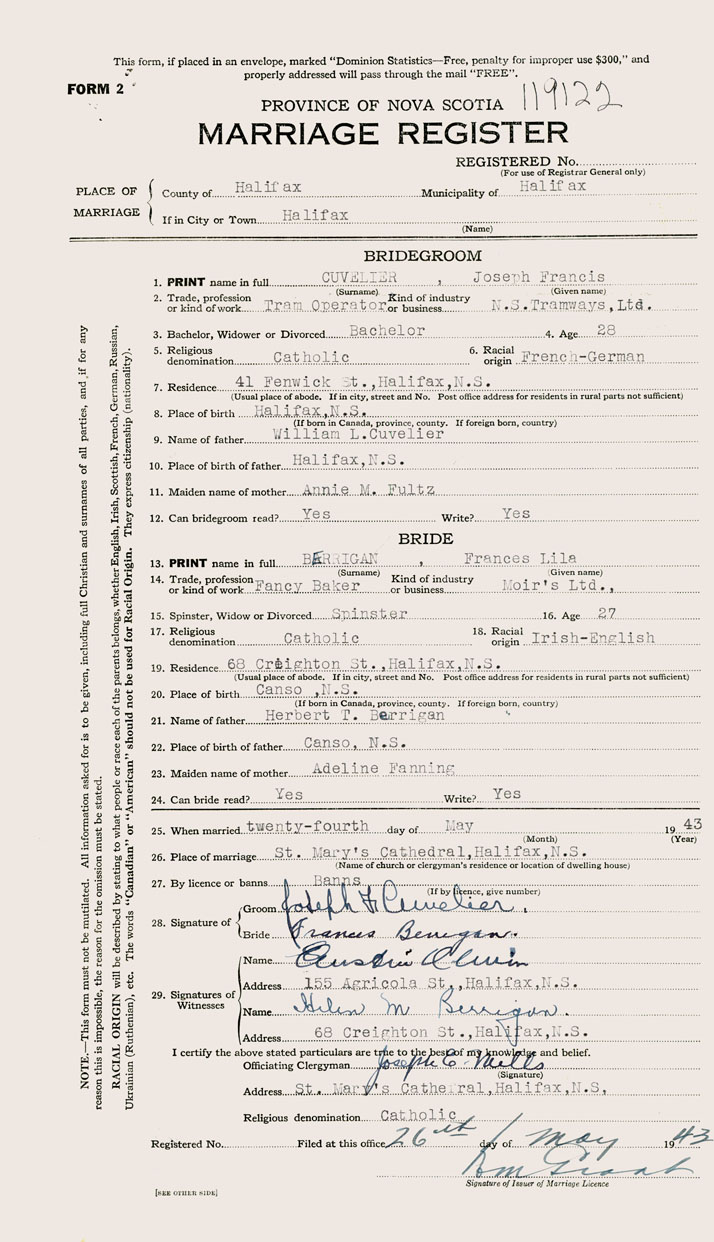 This form, if placed in an envelope, marked "Dominion Statistics—Free, penalty for improper use $300," and
properly addressed will pass through the mail "FREE".
FORM 2
PROVINCE OF NOVA SCOTIA 119122
MARRIAGE REGISTER
REGISTERED No.
(For use of Registrar General only)
PLACE OF MARRIAGE
County of Halifax Municipality of Halifax
If in City or Town Halifax
(Name)
BRIDEGROOM
1. PRINT name in full CUVELIER , Joseph Francis
(Surname) (Given name)
2. Trade, profession or kind of work Tram Operator Kind of industry or business N.S.Tramways,Ltd.
3. Bachelor, Widower or Divorced Bachelor 4. Age 28
5. Religious denomination Catholic 6. Racial origin French-German
7. Residence 41 Fenwick St.,Halifax,N.S.
(Usual place of abode. If in city, street and No. Post office address for residents in rural parts not sufficient)
8. Place of birth Halifax,N.S.
(If born in Canada, province, county. If foreign born, country)
9. Name of father William L.Cuvelier
10. Place of birth of father Halifax,N.S.
11. Maiden name of mother Annie M. Fultz
12. Can bridegroom read? Yes Write? Yes
BRIDE
13. PRINT name in full BERRIGAN , Frances Lila
(Surname) (Given name)
14. Trade, profession or kind of work Fancy Baker Kind of industry or business Moir's Ltd.,
15. Spinster, Widow or Divorced Spinster 16. Age 27
17. Religious denomination Catholic 18. Racial origin Irish-English
19. Residence 68 Creighton St.,Halifax,N.S.
(Usual place of abode. If in city, street and No. Post office address for residents in rural parts not sufficient)
20. Place of birth Canso ,N.S.
(If born in Canada, province, county. If foreign born, country)
21. Name of father Herbert T. Berrigan
22. Place of birth of father Canso, N.S.
23. Maiden name of mother Adeline Fanning
24. Can bride read? Yes Write? Yes
25. When married twenty-fourth day of May 1943
(Month) (Year)
26. Place of marriage St. Mary's Cathedral,Halifax,N.S.
(Name of church or clergyman's residence or location of dwelling house)
27. By licence or banns Banns
(If by licence, give number)
28. Signature of
Groom Joseph F Cuvelier
Bride Frances Berrigan.
29. Signatures of Witnesses
Name Austin
Address 155 Agricola St.,Halifax,N.S.
Name Helen M Berrigan.
Address 68 Creighton St.,Halifax,N.S.
I certify the above stated particulars are true to the best of my knowledge and belief.
Officiating Clergyman Joseph C. Mills
(Signature)
Address St. Mary's Cathedral,Halifax,N.S,
Religious denomination Catholic
Registered No. Filed at this office 26th day of May 1943
Signature of Issuer of Marriage Licence
[SEE OTHER SIDE]
NOTE.—This form must not be mutilated. All information asked for is to be given, including full Christian and surnames of all parties, and if for any
reason this is impossible, the reason for the omission must be stated.
RACIAL ORIGIN will be described by stating to what people or race each of the parents belongs, whether English, Irish, Scottish, French, German, Russian,
Ukrainian (Ruthenian), etc. The words "Canadian" or "American" should not be used for Racial Origin. They express citizenship (nationality).